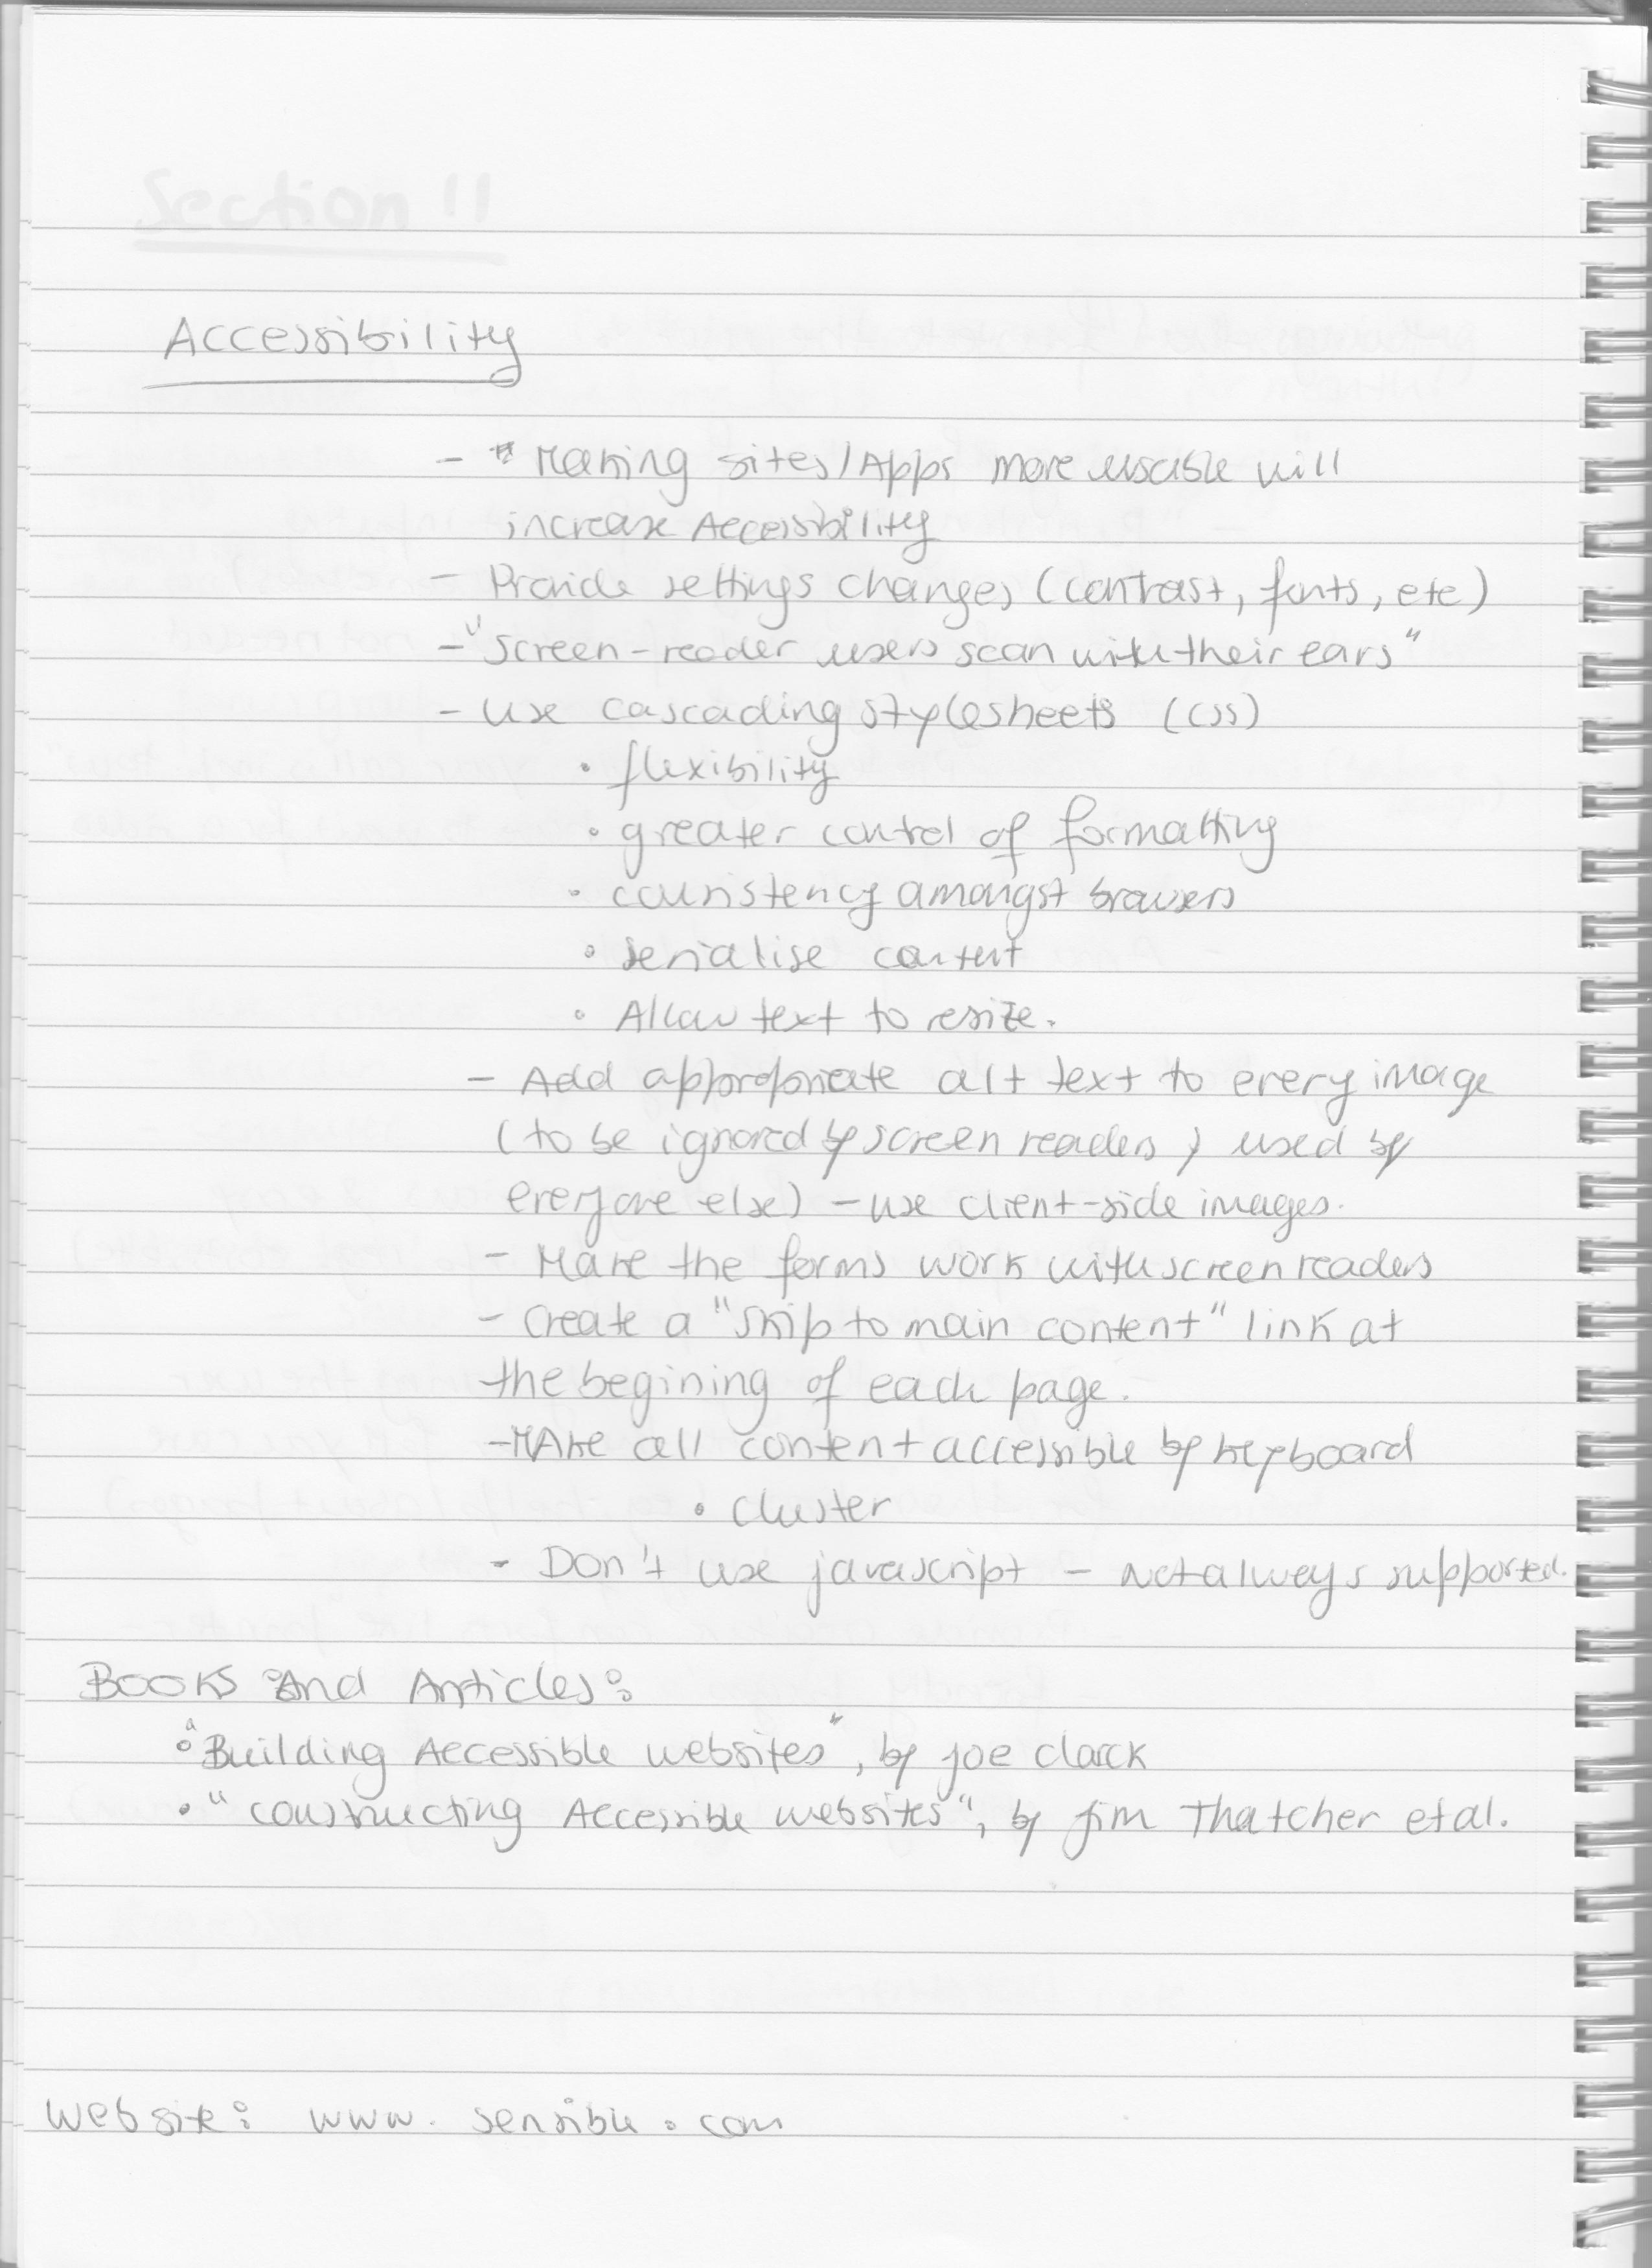 Section 11
Accessibility
- Making sites/Apps more usable will
increase Accessibility
- Provide settings changes (contrast, fonts, etc)
- "Screen-reader users scan with their ears"
- Use cascading stylesheets (CSS)
• flexibility
• greater control of formatting
• consistency amongst browsers
• Serialise content
• Allow text to resize.
- Add appropriate alt text to every image
(to be ignored by screen readers, used by
everyone else) - use client-side images.
- Make the forms work with screen readers
- Create a "skip to main content" link at
the begining of each page.
- MAke all content accessible by keyboard
• Cluster
- Don't use javascript - Not always supported.
Books And Articles:
• "Building Accessible websites", by Joe Clarck
• "Constructing Accessible websites", by Jim Thatcher et al.
Website: www.sensible.com